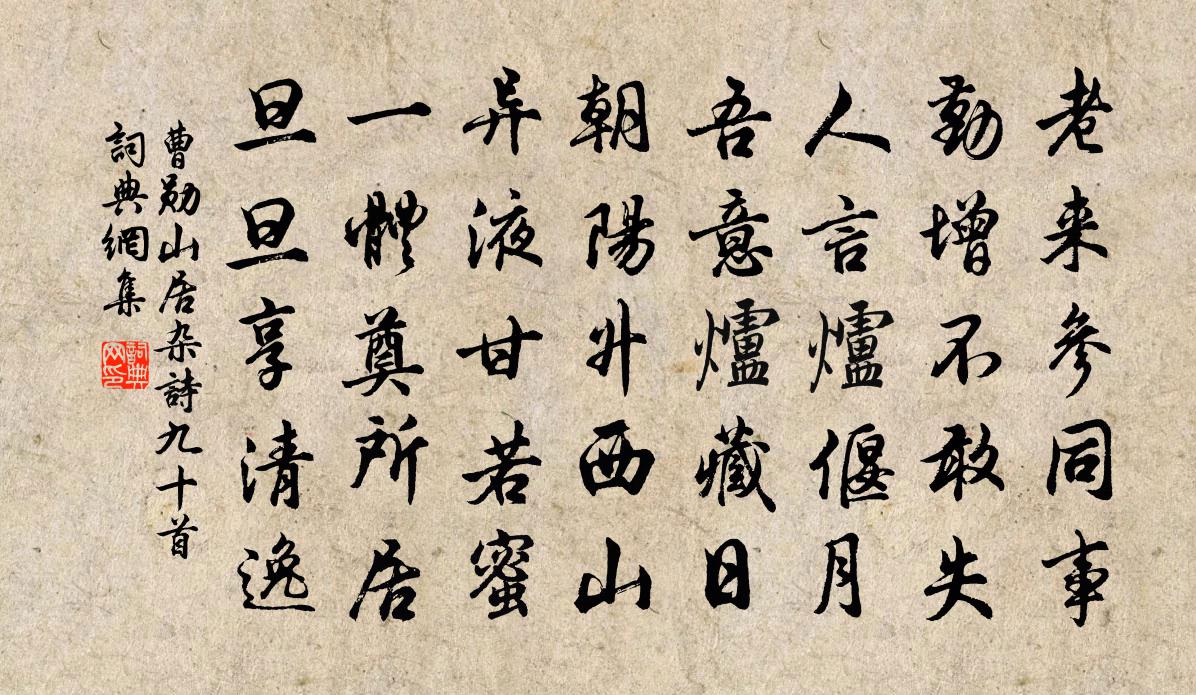 老来參同事
勤增不敢失
人言爐偃月
吾意爐藏日
朝陽升西山
异液甘若蜜
一體奠所居
旦旦享清逸
曹勛山居杂詩九十首
詞典網集
詞典网印